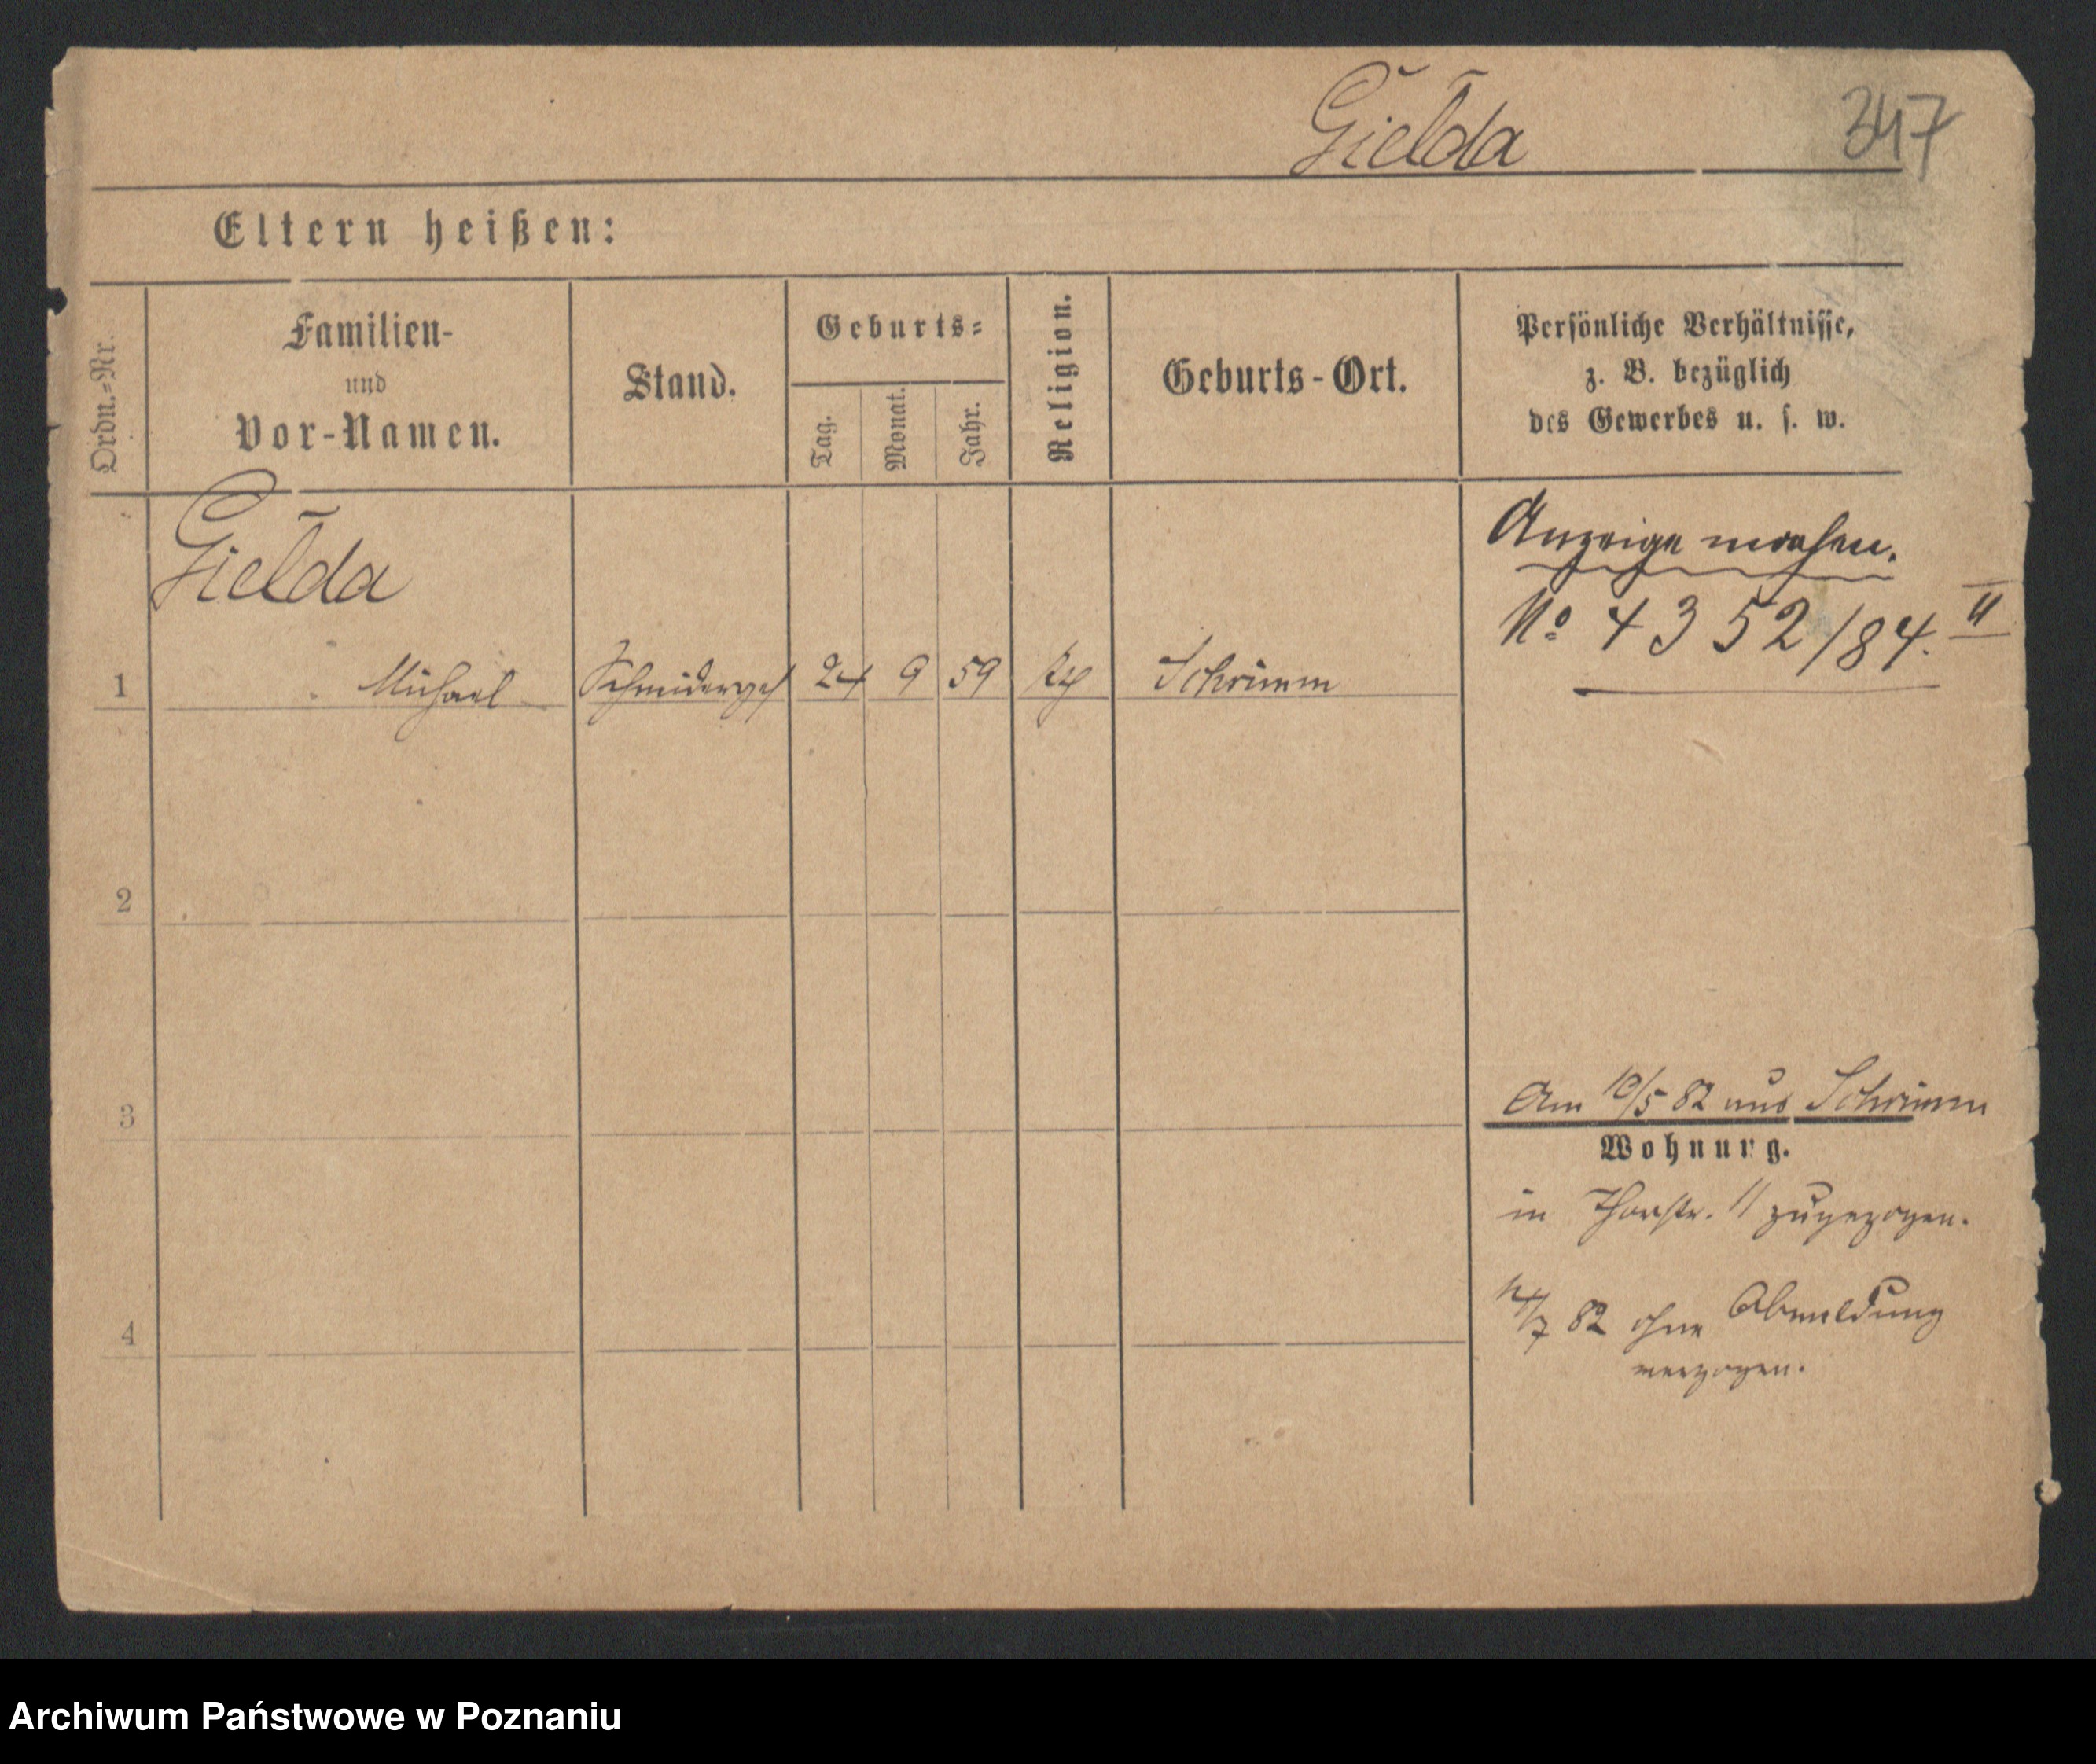 Giełda 347
Eltern heißen:
Ordn.-Nr.
Familien-
und
Vor-Namen.
Stand.
Geburts-
Tag.
Monat.
Jahr.
Religion.
Geburts-Ort.
Persönliche Verhältnisse,
z. B. bezüglich
des Gewerbes u. s. w.
Giełda
Anzeige machen.
No 4352/84. II
1 Michael Schneiderges 24 9 59 Schrimm
2
3
Am 10/5 82 aus Schrimm
Wohnung.
in Thorstr. 11 zugezogen.
4
/7 82 ohne Abmeldung
verzogen.
Archiwum Państwowe w Poznaniu